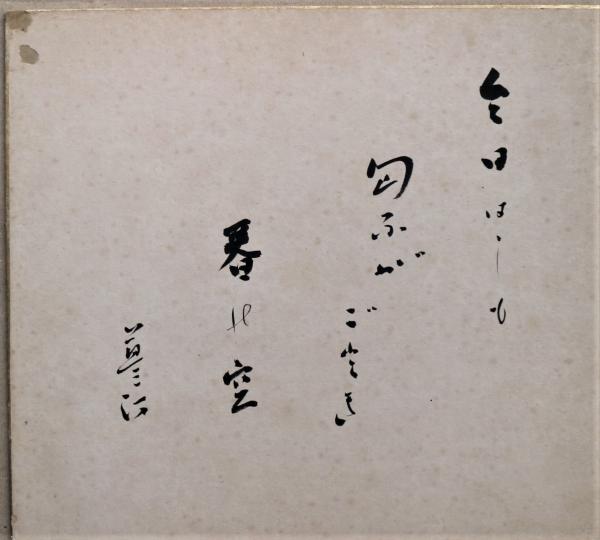 今日はしも
匂ふがごとき
春の空